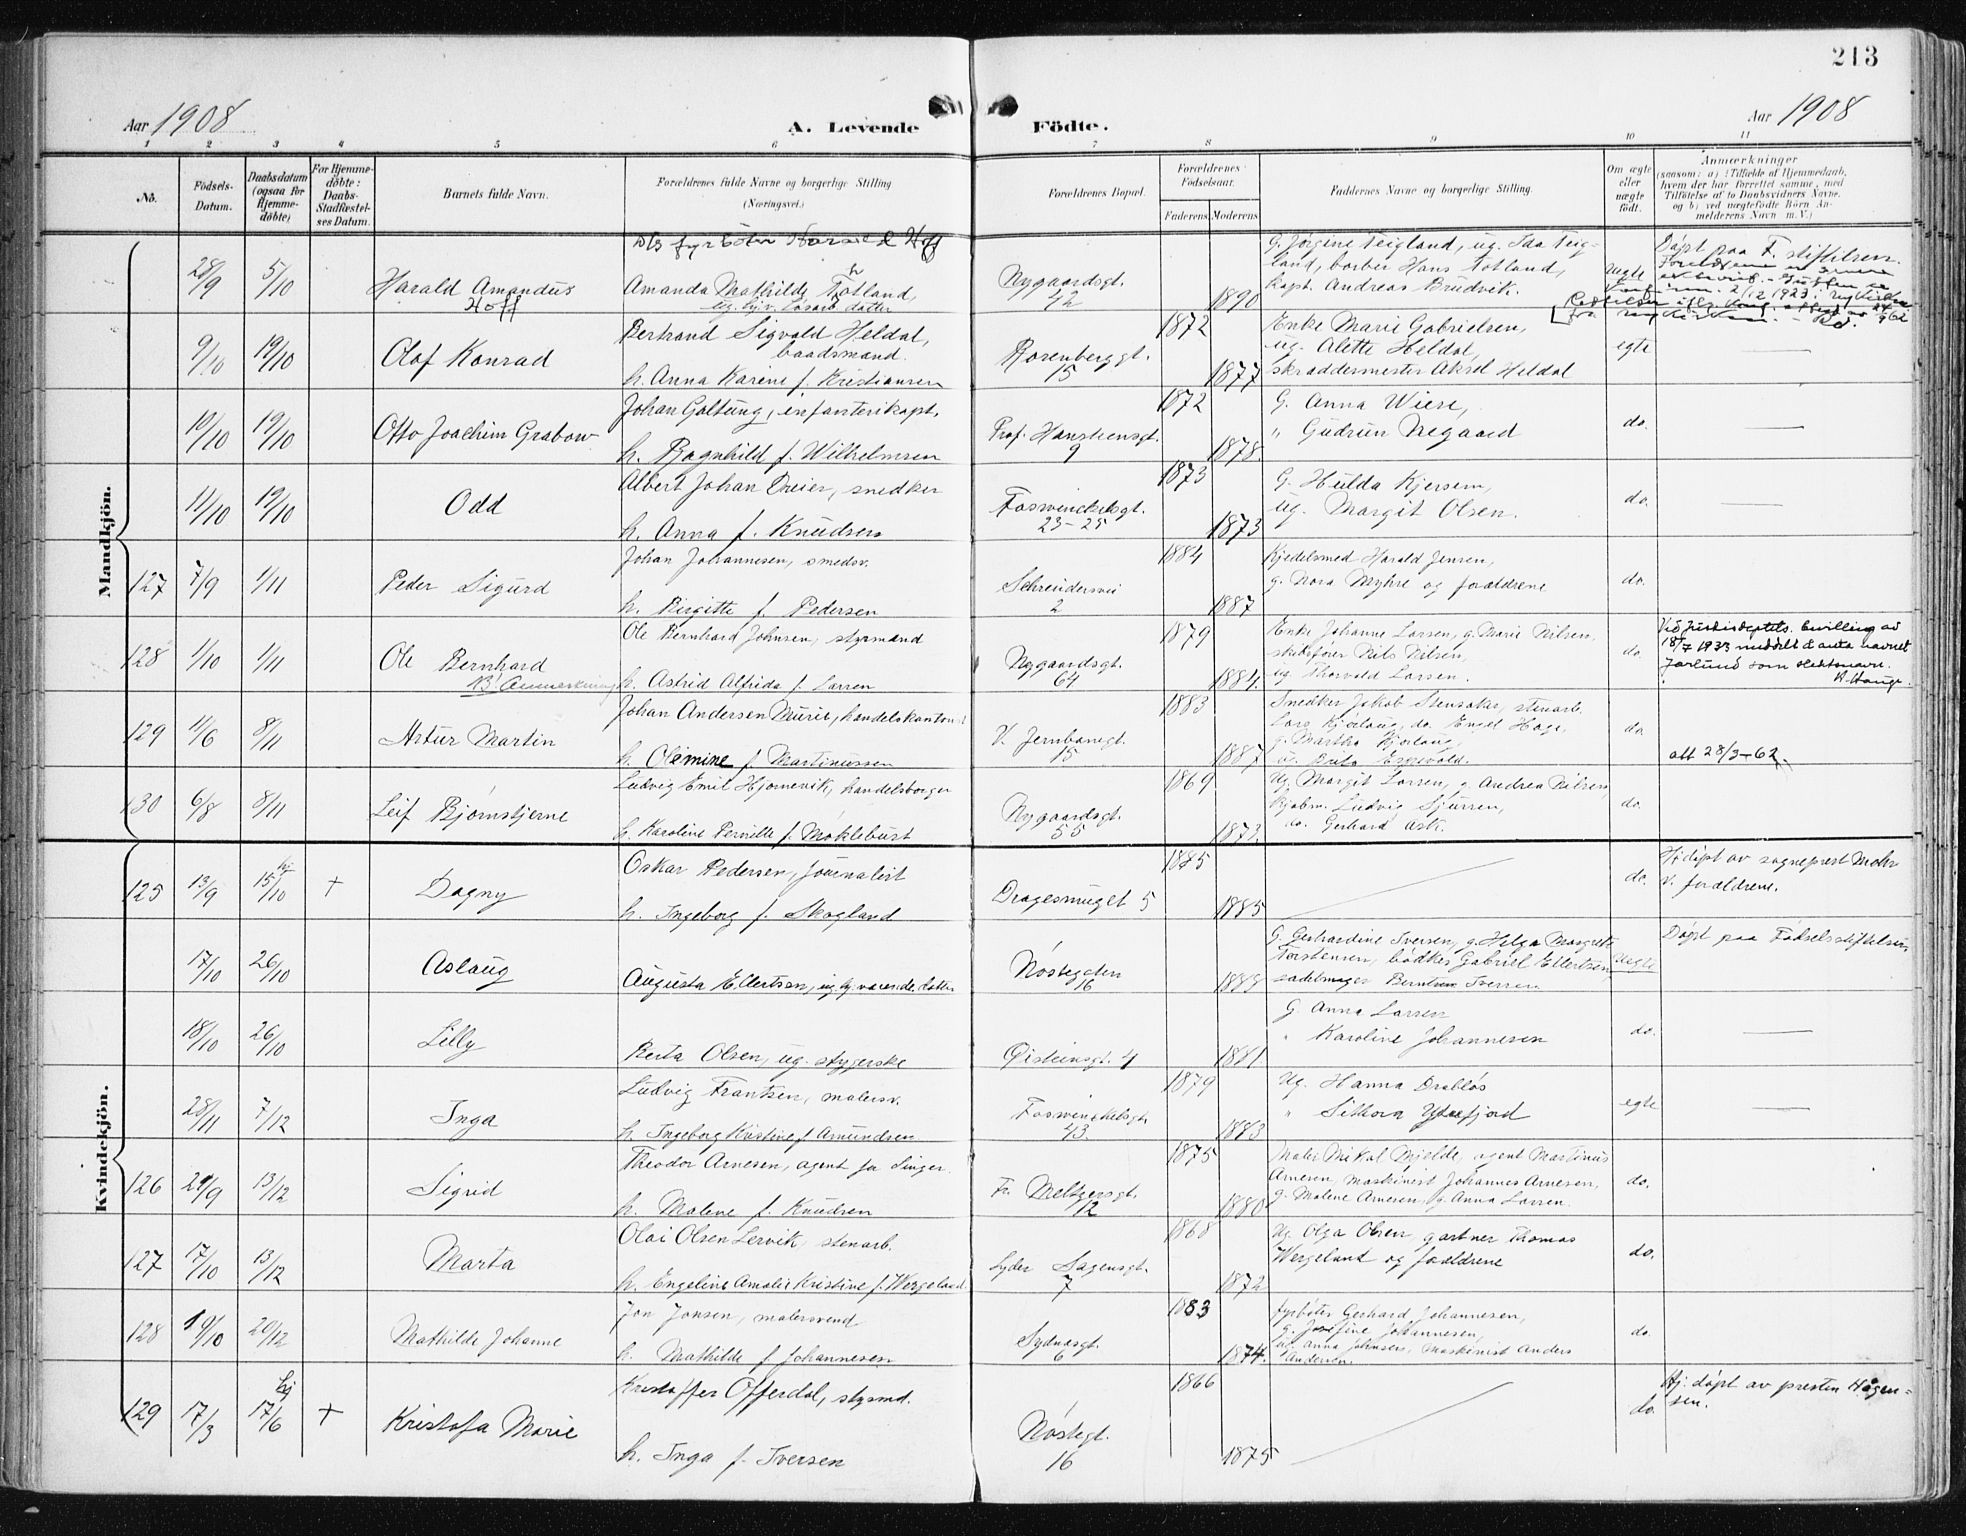 213
Aar 1908
A. Levende Födte.
Aar 1908
1 2 3 4 5 6 7 8 9 10 11
No.
Födsels-Datum.
Daabsdatum (ogsaa for Hjemme-döbte)
For Hjemme-döbte: Daabs-Stadfæstel-ses Datum.
Barnets fulde Navn.
Forældrenes fulde Navne og borgerlige Stilling (Næringsvei.)
Forældrenes Bopæl.
Forældrenes Födselsaar.
Faderens Moderens
Faddernes Navne og borgerlige Stilling.
Om ægte eller uægte födt.
Anmærkninger
(saasom: a) i Tilfælde af Hjemmedaab, hvem der har forrettet samme, med Tilföielse af to Daabsvidners Navne. og b) ved uægtefödte Börn An-melderens Navn m.V.)
Mandkjön.
28/9 5/10 Harald Amandus Hoff
fyrböter Hoff
Amanda Mathilde Totland,
Nygaardsgt. 42
1890
G. Jørgine Teigland, ug. Ida Teig-
land, barber Hans Totland,
kapt. Andreas Brudvik.
Uegte
Døpt paa F. stiftelsen.
9/10 19/10 Olaf Konrad
Bertrand Sigvald Heldal,
baadsmand.
h. Anna Karine f. Kristiansen
Rosenberggt. 15
1872
1877
Enke Marie Gabrielsen,
ug. Alette Heldal,
skræddermester Aksel Heldal
egte
10/10 19/10 Otto Joachim Grabow
Johan Galtung, infanterikapt.
h. Ragnhild f. Wilhelmsen
Prof. Hansteensgt. 9
1872
1878.
G. Anna Wiese,
" Gudrun Negaard
do.
11/10 19/10 Odd
Albert Johan Meier, snedker
h. Anna f. Knudsen
Fosswinckelsgt. 23-25
1873
1873
G. Hulda Kjersem,
ug. Margit Olsen.
do.
127 7/9 1/11 Peder Sigurd
Johan Johannesen, smedsv.
h. Birgitte f. Pedersen
Schreudersvei 2
1884
1887
Kjedelsmed Harald Jensen,
g. Nora Myhre og forældrene
do.
128 1/10 1/11 Ole Bernhard
B! Anmerkning
Ole Bernhard Johnsen, styrmand
h. Astrid Alfrida f. Larsen
Nygaardsgt. 64
1879
1884.
Enke Johanne Larsen, g. Marie Nilsen,
skibsfører Nils Nilsen,
ug. Thorvald Larsen.
do.
Ved Justisdeptets. bevilling av
18/7 1933 meddelt å anta navnet
Jarlund som slektsnavn.
H. Hauge.
129 11/6 8/11 Artur Martin
Johan Andersen Murie, handelskantor
h. Olemine f. Martinussen
V. Jernbanegt. 15
1883
1887
Snedker Jakob Stensaker, stenarb.
g. Martha
do.
att 28/3-62.
130 6/8 8/11 Leif Bjørnstjerne
Ludvig Emil Hjørnevik, handelsborger
h. Karoline Pernille f. Møklebust
Nygaardsgt. 55
1869
1873.
Ug. Margit Larsen, g. Andrea Nilsen,
Kjøbm. Ludvig Sjursen,
do. Gerhard Ask.
do.
Kvindekjön.
125 13/9 hj 15/10 + Dagny
Oskar Pedersen, journalist
h. Ingeborg f. Skogland
Dragesmuget 5
1885
1885
do.
Hj. døpt av sogneprest Mohr
v. forældrene.
17/10 26/10 Aslaug
Augusta Ellertsen, ug. hj. værende datter
Nøstegaten 16
1883
G. Gerhardine Iversen, g. Helga Margrete
Torstensen, bødker Gabriel Ellertsen,
sadelmager Iversen
Uegte
Døpt paa Fødselsstiftelsen
18/10 26/10 Lilly
Berta Olsen, ug. sygerske
Østeinsgt. 4
1881
G. Anna Larsen
" Karoline Johannesen
do.
28/11 7/12 Inga
Ludvig Frantzen, malersv.
h. Ingeborg Kristine f. Amundsen
Fosswinckelsgt. 43.
1879
1883
Ug. Hanna Drabløs
" Ytrefjord
egte
126 29/9 13/12 Sigrid
Theodor Arnesen, agent for Singer.
h. Malene f. Knudsen
Fr. Meltzersgt. 12
1875
1880
Maler Mikal Mjelde, agent Martinus
Arnesen, Maskinist Johannes Arnesen,
g. Malene Arnesen, g. Anna Larsen.
do.
127 17/10 13/12 Marta
Olai Olsen Lervik, stenarb.
h. Engeline Amalie Kristine f. Wergeland
Lyder Sagensgt. 7
1868
1872
Ug. Olga Olsen, gartner Thomas
Wergeland og forældrene
do.
128 19/10 20/12 Mathilde Johanne
Jon Jonsen, malersvend
h. Mathilde f. Johannesen
Sydnæsgt. 6
1883
1874.
fyrbøter Gerhard Johannesen,
g. Josefine Johannesen,
ug. Anna Johnsen, Maskinist Anders
Andersen.
do.
129 17/3 hj 17/6 + Kristofa Marie
Kristoffer Offerdal, styrmd.
h. Inga f. Iversen
Nøstegt. 16
1866
1875
do.
Hj. døpt av presten Hagen=
sen.